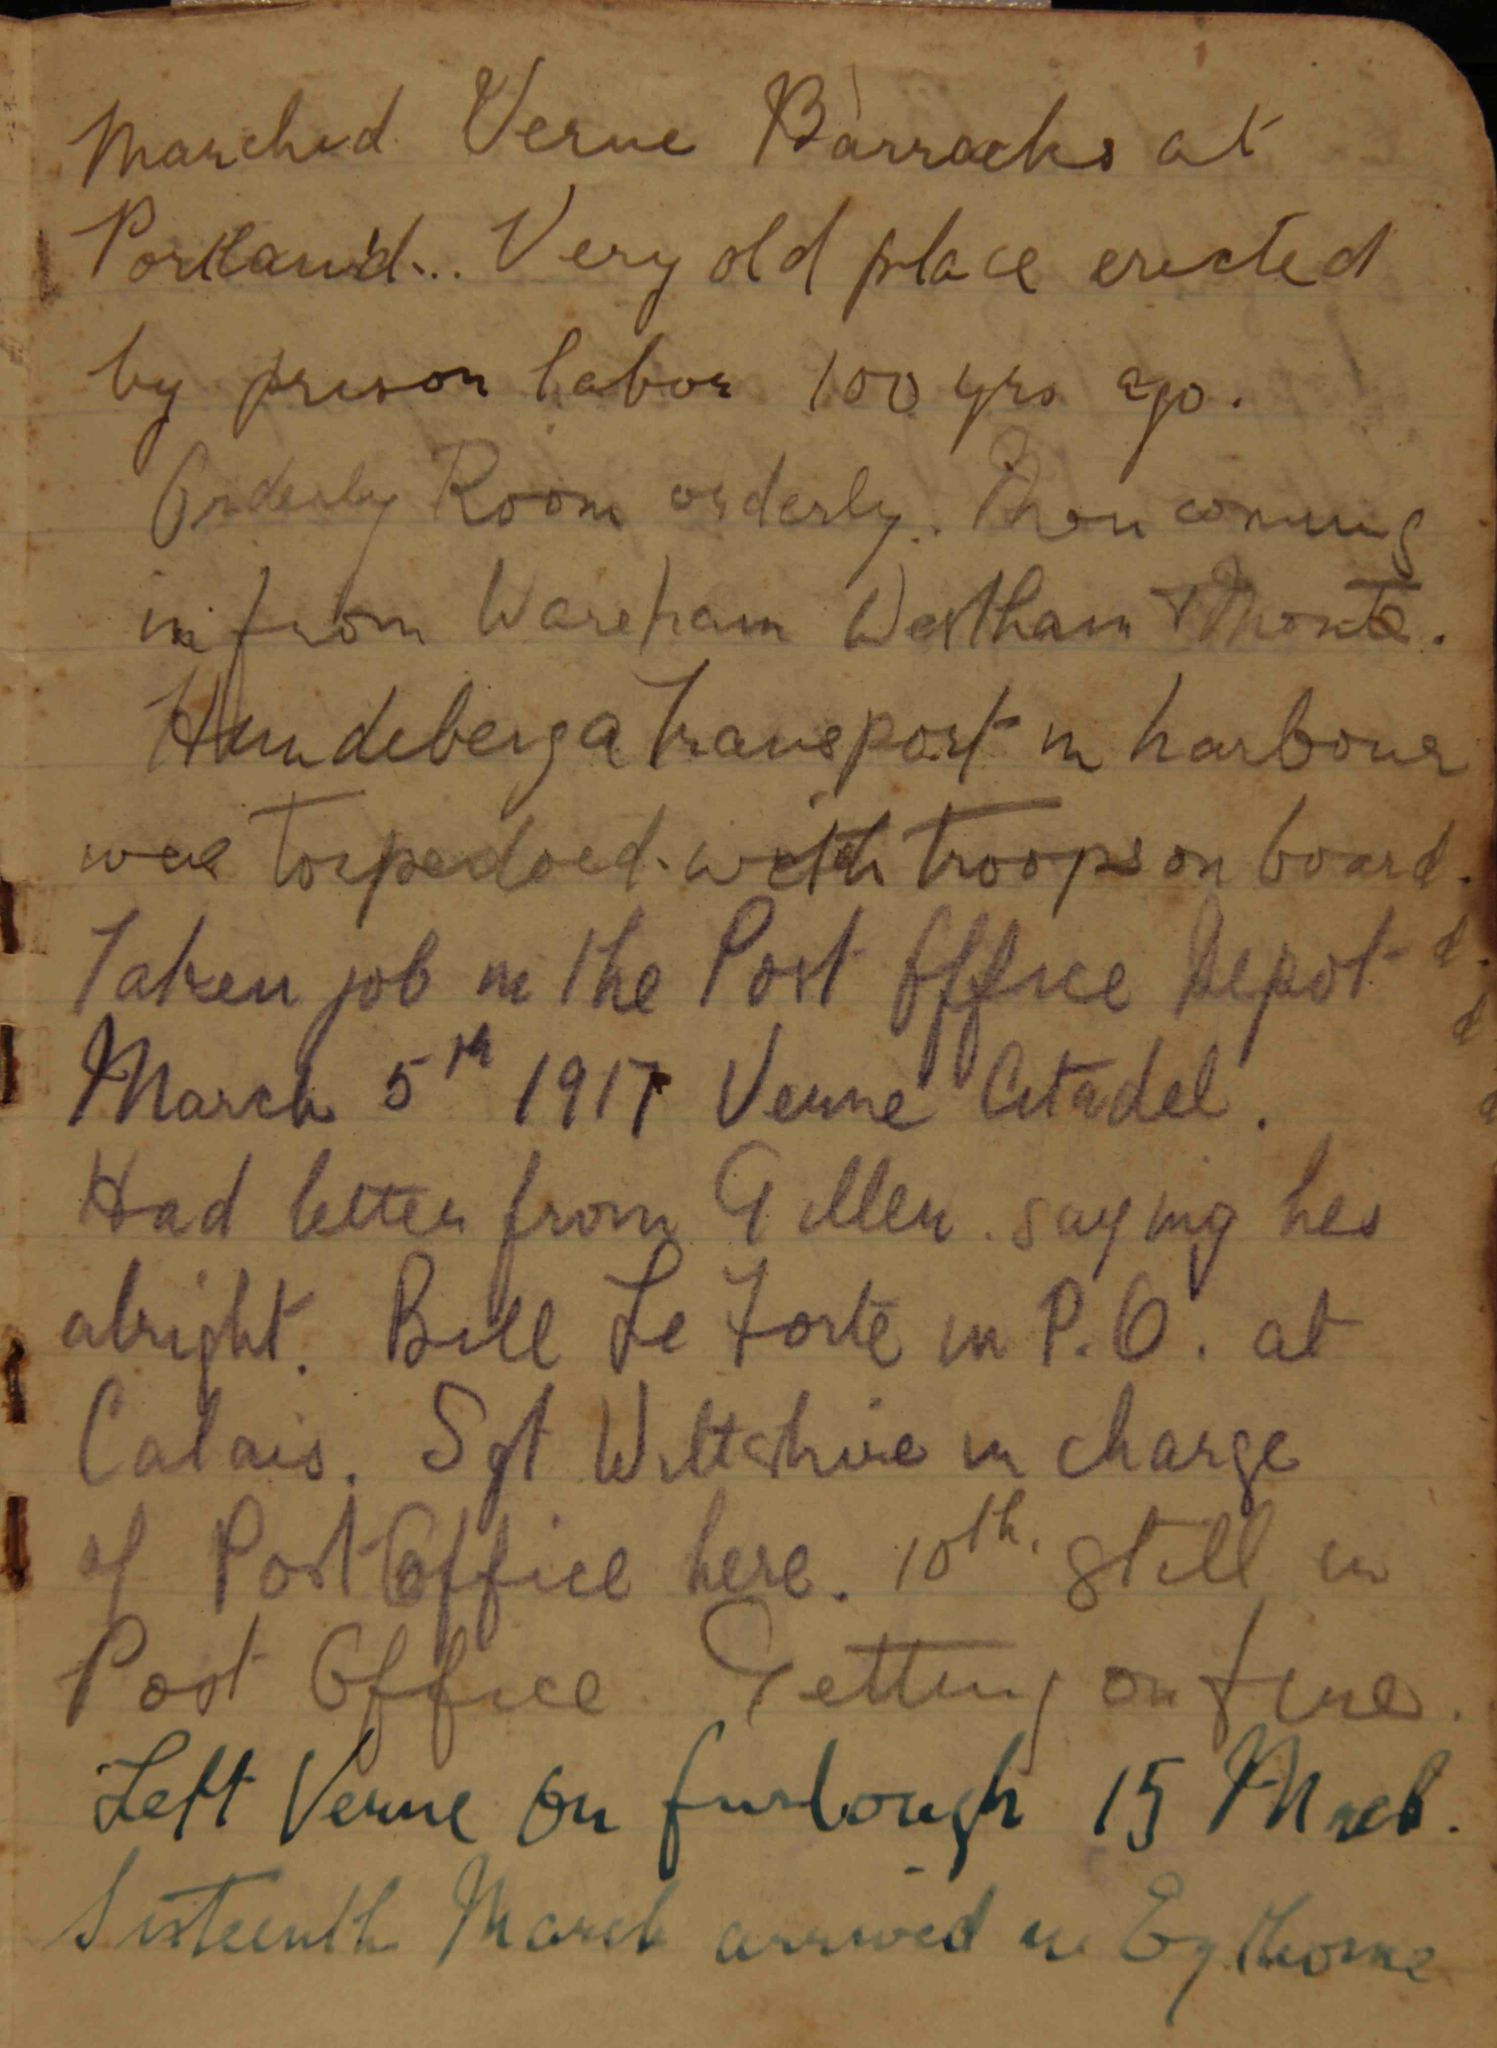 Marched Verne Barracks at
Portland... Very old place erected
by prison labor 100 yrs ago.
Orderly Room orderly. Men coming
in from Wareham Westham & Monte.
transport in harbour
was torpedoed with troops on board.
Taken job in the Post Office Depot
March 5th 1917 Verne Citadel.
Had letter from Gillen. saying hes
alright. Bill Le Forte in P.O. at
Calais. Sgt Wiltshire in charge
of Post Office here. 10th. Still in
Post Office Getting on fine.
Left Verne on furlough 15 March.
Sixteenth March arrived in Eythorne